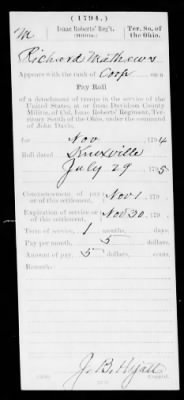 (1794.)
M | Isaac Roberts' Reg't. | Ter. So. of the Ohio.
Richard Mathews
Appears with the rank of Corp on a
Pay Roll
of a detachment of troops in the service of the
United States, at or from Davidson County
Militia, of Col. Isaac Roberts' Regiment, Territory
South of the Ohio, under the command
of John Davis,
for Nov, 1794
Roll dated Knoxville
July 29, 1795
Commencement of pay of this settlement, Nov 1, 179
Expiration of service or of this settlement, Nov 30, 179
Term of service, 1 months, days.
Pay per month, 5 dollars, cents.
Amount of pay, 5 dollars, cents.
Remarks:
J. B. Hyatt
Copyist.